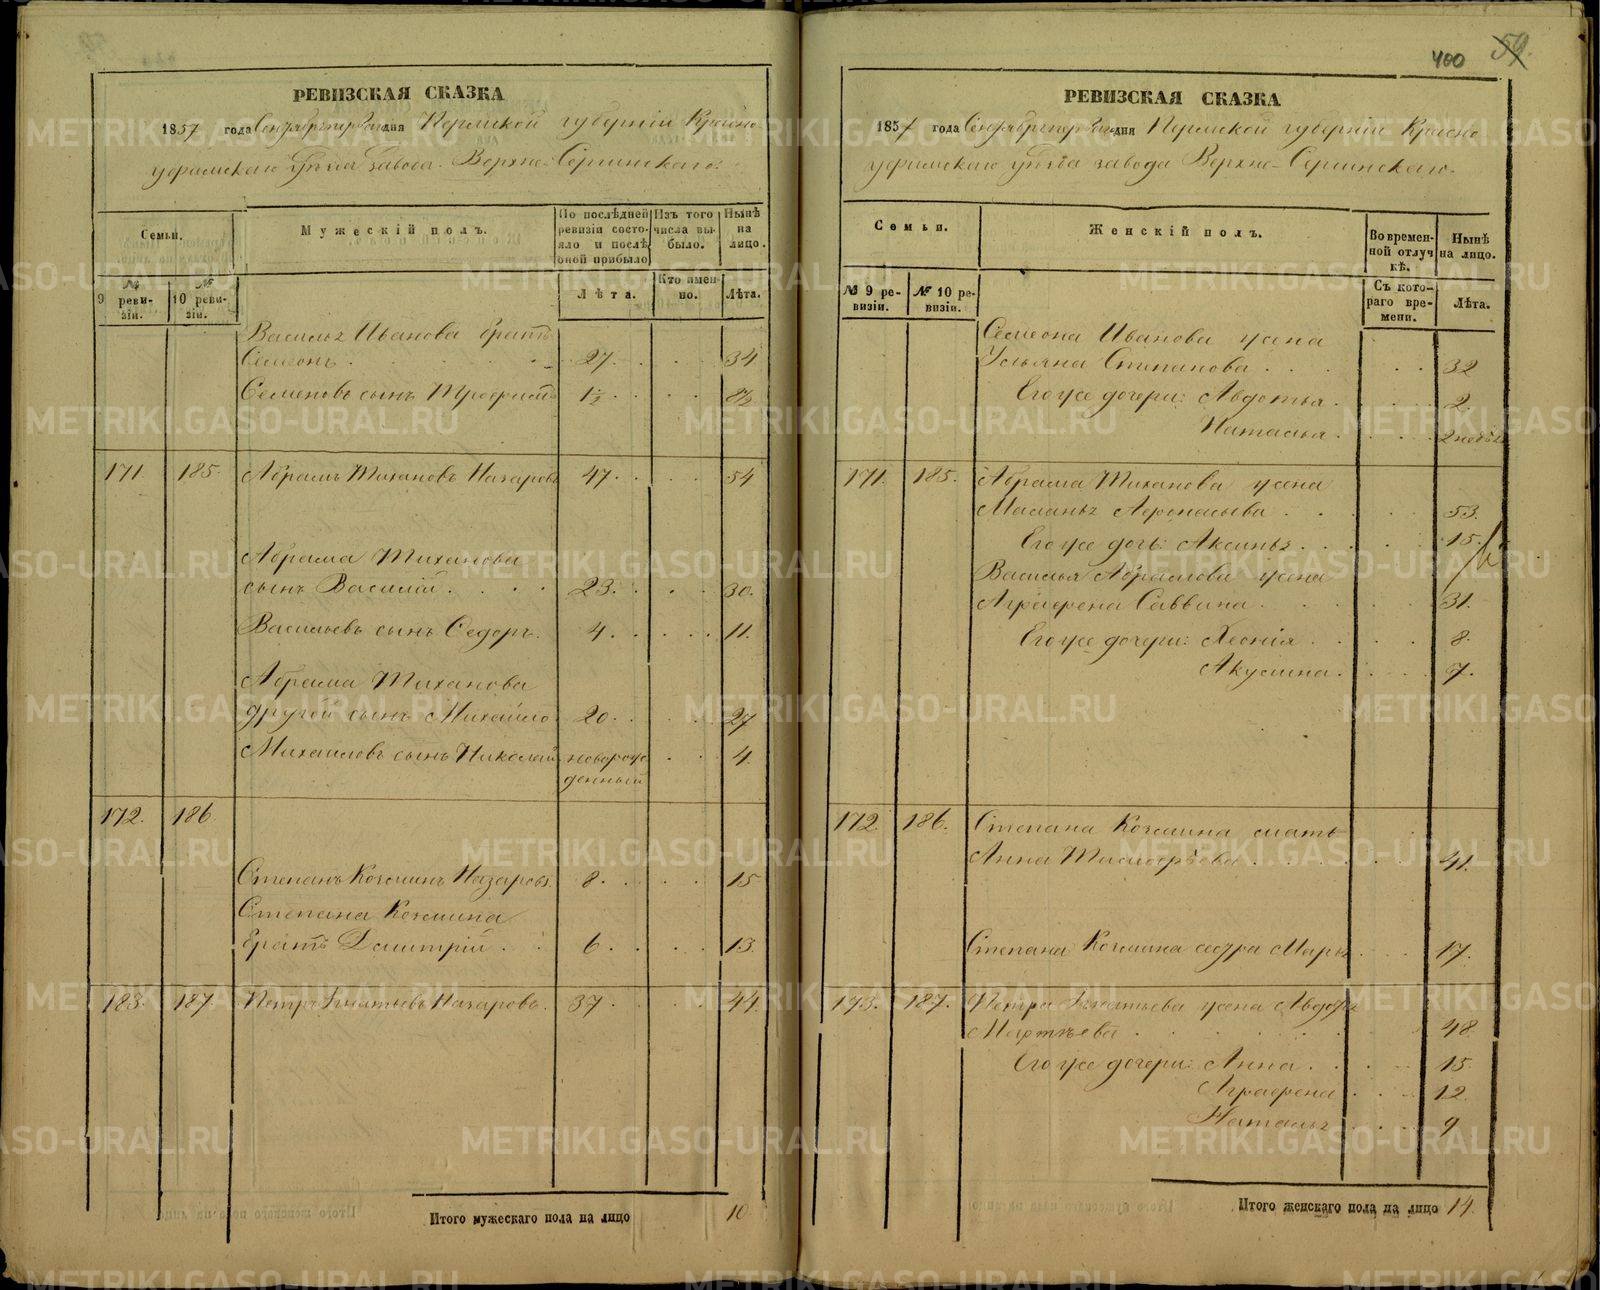 400 59.
РЕВИЗСКАЯ СКАЗКА
1857 года Сентября дня Пермской губернiи Красно-
уфимскаго уѣзда завода Верхне-Сергинскаго.
Семьи.
Мужескiй полъ.
По послѣдней ревизiи состояло и послѣ оной прибыло
Изъ того числа выбыло.
Нынѣ на лицо.
№ 9 ревизiи.
№ 10 ревизiи.
Лѣта.
Кто именно.
Лѣта.
Василья Иванова братъ
Семеонъ 27. 34
Семеновъ сынъ Трофимъ 1½ 8½
171. 185. Абрамъ Тихановъ Назаровъ 47. 54
Абрама Тиханова
сынъ Василiй 23. 30.
Васильевъ сынъ Федоръ. 4. 11.
Абрама Тиханова
другой сынъ Михайло 20. 27
Михаиловъ сынъ Николай новорож- 4.
денный
172. 186.
Степанъ Козминъ Назаровъ 8. 15
Степана Козмина
братъ Дмитрiй 6. 13.
183. 187. Петръ Игнатьевъ Назаровъ. 37 44.
Итого мужескаго пола на лицо 10
РЕВИЗСКАЯ СКАЗКА
1857 года Сентября дня Пермской губернiи Красно-
уфимскаго уѣзда завода Верхне-Сергинскаго.
Семьи.
Женскiй полъ.
Во временной отлучкѣ.
Нынѣ на лицо.
№ 9 ревизiи.
№ 10 ревизiи.
Съ котораго времени.
Лѣта.
Семеона Иванова жена
Ульяна Степанова 32
Его же дочери: Авдотья. 2.
Наталья. 2 недѣли
171. 185. Абрама Тиханова жена
Маланья Афонасьева 53.
Его же дочь: Аксинья 15.
Василья Абрамова жена
Аграфена Саввина 31.
Его же дочери: Хеонiя 8.
Акулина. 7.
172. 186. Степана Козмина мать
Анна Тимофѣева 41.
Степана Козмина сестра Марья 17.
173. 187. Петра Игнатьева жена Авдотья
Матвѣева 48
Его же дочери: Анна 15.
Аграфена 12
Наталья 9
Итого женскаго пола на лицо 14.
METRIKI.GASO-URAL.RU